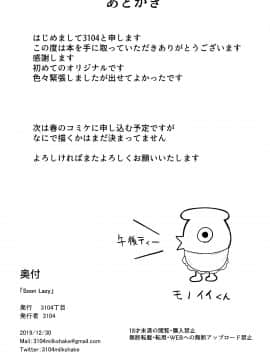 あとがき
はじめまして3104と申します
この度は本を手に取っていただきありがとうございます
感謝します
初めてのオリジナルです
色々緊張しましたが出せてよかったです
次は春のコミケに申し込む予定ですが
なにで描くかはまだ決まってません
よろしければまたよろしくお願いいたします
午後ティー
モノイイくん
奥付
「Soon Lazy」
発行 3104丁目
発行者 3104
2019/12/30
Mail:3104milkshake@gmail.com
Twitter:3104milkshake
18才未満の閲覧・購入禁止
無断転載・転用・WEBへの無断アップロード禁止